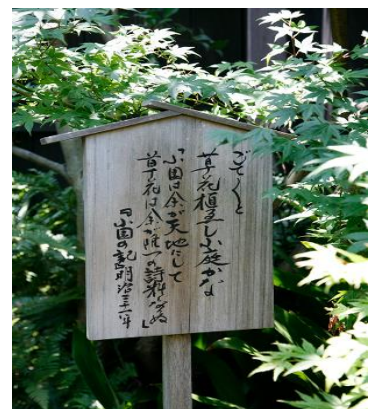 ごて〱と
草花植ゑし小庭かな
「小園は余が天地にして
草花は余が唯一の詩料となりぬ」
『小園の記』明治三十一年